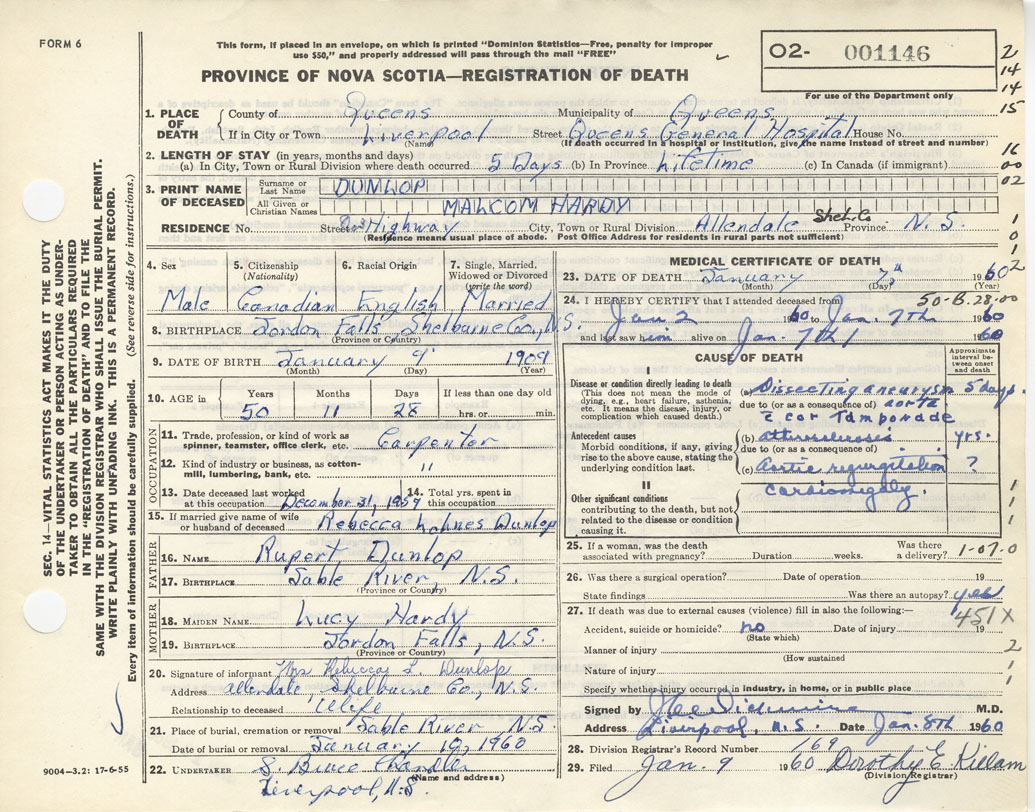 FORM 6
This form, if placed in an envelope, on which is printed "Dominion Statistics—Free, penalty for improper
use $50," and properly addressed will pass through the mail "FREE"
PROVINCE OF NOVA SCOTIA—REGISTRATION OF DEATH
02- 001146
For use of the Department only
2
14
14
15
16
00
02
1
0
1
2
SEC. 14—VITAL STATISTICS ACT MAKES IT THE DUTY
OF THE UNDERTAKER OR PERSON ACTING AS UNDER-
TAKER TO OBTAIN ALL THE PARTICULARS REQUIRED
IN THE "REGISTRATION OF DEATH" AND TO FILE THE
SAME WITH THE DIVISION REGISTRAR WHO SHALL ISSUE THE BURIAL PERMIT.
WRITE PLAINLY WITH UNFADING INK. THIS IS A PERMANENT RECORD.
Every item of information should be carefully supplied. (See reverse side for instructions.)
1. PLACE OF DEATH
County of Queens Municipality of Queens
If in City or Town Liverpool Street Queens General Hospital House No.
(Name) (If death occurred in a hospital or institution, give the name instead of street and number)
2. LENGTH OF STAY (in years, months and days)
(a) In City, Town or Rural Division where death occurred 5 Days (b) In Province Lifetime (c) In Canada (if immigrant)
3. PRINT NAME OF DECEASED
Surname or Last Name DUNLOP
All Given or Christian Names MALCOM HARDY
RESIDENCE No. Street Highway City, Town or Rural Division Allendale Shel. Co Province N. S.
(Residence means usual place of abode. Post Office Address for residents in rural parts not sufficient)
4. Sex 5. Citizenship (Nationality) 6. Racial Origin 7. Single, Married, Widowed or Divorced (write the word)
Male Canadian English Married
8. BIRTHPLACE Jordon Falls, Shelburne Co., N.S.
(Province or Country)
9. DATE OF BIRTH January 9 1909
(Month) (Day) (Year)
10. AGE in Years Months Days If less than one day old
50 11 28 hrs. or min.
OCCUPATION
11. Trade, profession, or kind of work as
spinner, teamster, office clerk, etc. Carpenter
12. Kind of industry or business, as cotton-
mill, lumbering, bank, etc. "
13. Date deceased last worked
at this occupation December 31, 1959 14. Total yrs. spent in
this occupation
15. If married give name of wife
or husband of deceased Rebecca Lohnes Dunlop
FATHER
16. NAME Rupert Dunlop
17. BIRTHPLACE Sable River, N.S.
(Province or Country)
MOTHER
18. MAIDEN NAME Lucy Hardy
19. BIRTHPLACE Jordon Falls, N.S.
(Province or Country)
20. Signature of informant Mrs Rebecca L. Dunlop
Address Allendale, Shelburne Co., N.S.
Relationship to deceased Wife
21. Place of burial, cremation or removal Sable River N.S.
Date of burial or removal January 10, 1960
22. UNDERTAKER S. Bruce Chandler
(Name and address)
Liverpool, N.S.
9004—3.2: 17-6-55
MEDICAL CERTIFICATE OF DEATH
23. DATE OF DEATH January 7th 1960
(Month) (Day)
24. I HEREBY CERTIFY that I attended deceased from 50-B.28-00
Jan 2 1960 to Jan. 7th 1960
and last saw him alive on Jan. 7th 1960
CAUSE OF DEATH
Approximate interval between onset and death
I
Disease or condition directly leading to death
(This does not mean the mode of
dying, e.g., heart failure, asthenia,
etc. It means the disease, injury, or
complication which caused death.)
(a) Dissecting aneurysm 5 days.
due to (or as a consequence of) aorta
c̄ car Tamponade
Antecedent causes
Morbid conditions, if any, giving
rise to the above cause, stating the
underlying condition last.
(b) atherosclerosis yrs.
due to (or as a consequence of)
(c) Aortic regurgitation ?
II
Other significant conditions
contributing to the death, but not
related to the disease or condition
causing it.
Cardiomegaly.
1
1
1
25. If a woman, was the death
associated with pregnancy? Duration weeks. Was there
a delivery? 1-07-0
26. Was there a surgical operation? Date of operation 19
State findings Was there an autopsy? yes
27. If death was due to external causes (violence) fill in also the following:—
451X
Accident, suicide or homicide? no Date of injury 19
(State which)
Manner of injury 2
(How sustained
Nature of injury 1
Specify whether injury occurred in industry, in home, or in public place 1
Signed by M.D.
Address Liverpool, N.S. Date Jan. 8th 1960
28. Division Registrar's Record Number 169
29. Filed Jan. 9 1960 Dorothy E Killam
(Division Registrar)